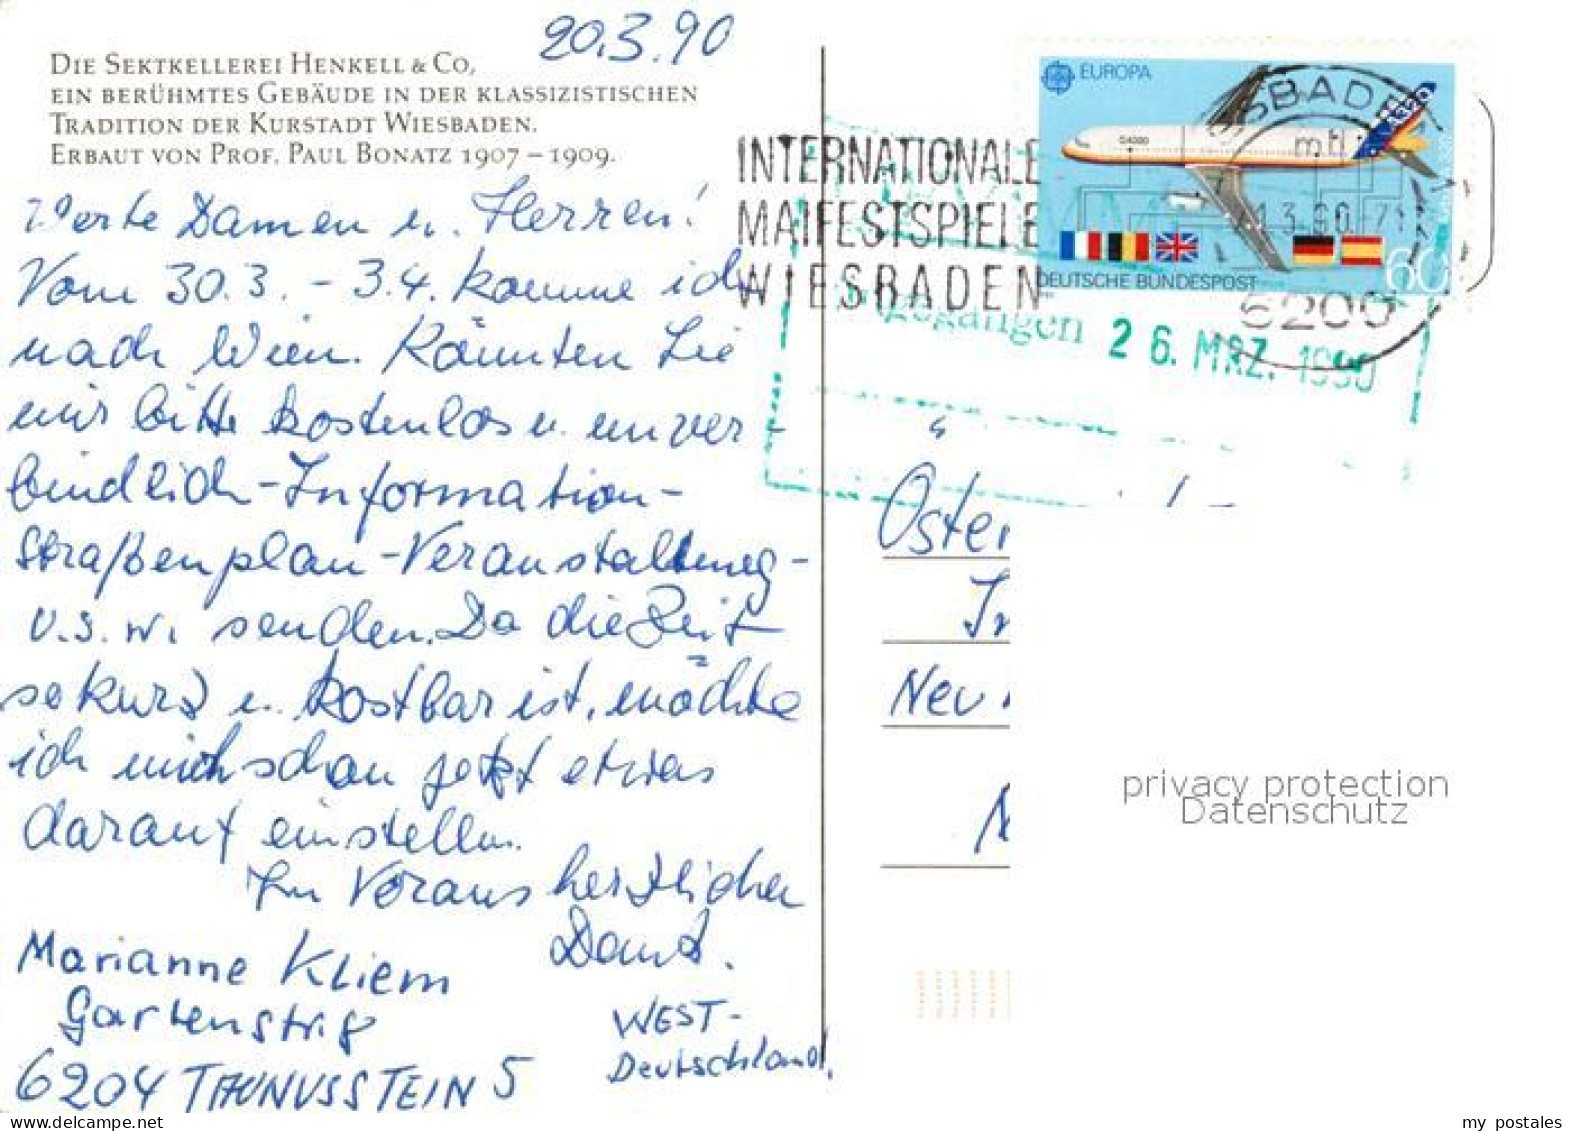 20.3.90
DIE SEKTKELLEREI HENKELL & CO,
EIN BERÜHMTES GEBÄUDE IN DER KLASSIZISTISCHEN
TRADITION DER KURSTADT WIESBADEN.
ERBAUT VON PROF. PAUL BONATZ 1907 – 1909.
Werte Damen u. Herren!
Vom 30.3. - 3.4. komme ich
nach Wien. Könnten Sie
mir bitte kostenlos u. unver-
bindlich - Information-
Straßenplan - Veranstaltung-
u.s.w. senden. Da die Zeit
so kurz u. kostbar ist, möchte
ich mich schon jetzt etwas
darauf einstellen.
Im Voraus herzlichen
Dank.
Marianne Kliem
Gartenstr. 8
6204 TAUNUSSTEIN 5
WEST-
Deutschland,
INTERNATIONALE
MAIFESTSPIELE
WIESBADEN
EUROPA
A320
DEUTSCHE BUNDESPOST
60
SBADE
mtl
.3.90.
6200
gegangen 26. MRZ. 1990
Öster
In
Neu
privacy protection
Datenschutz
my postales